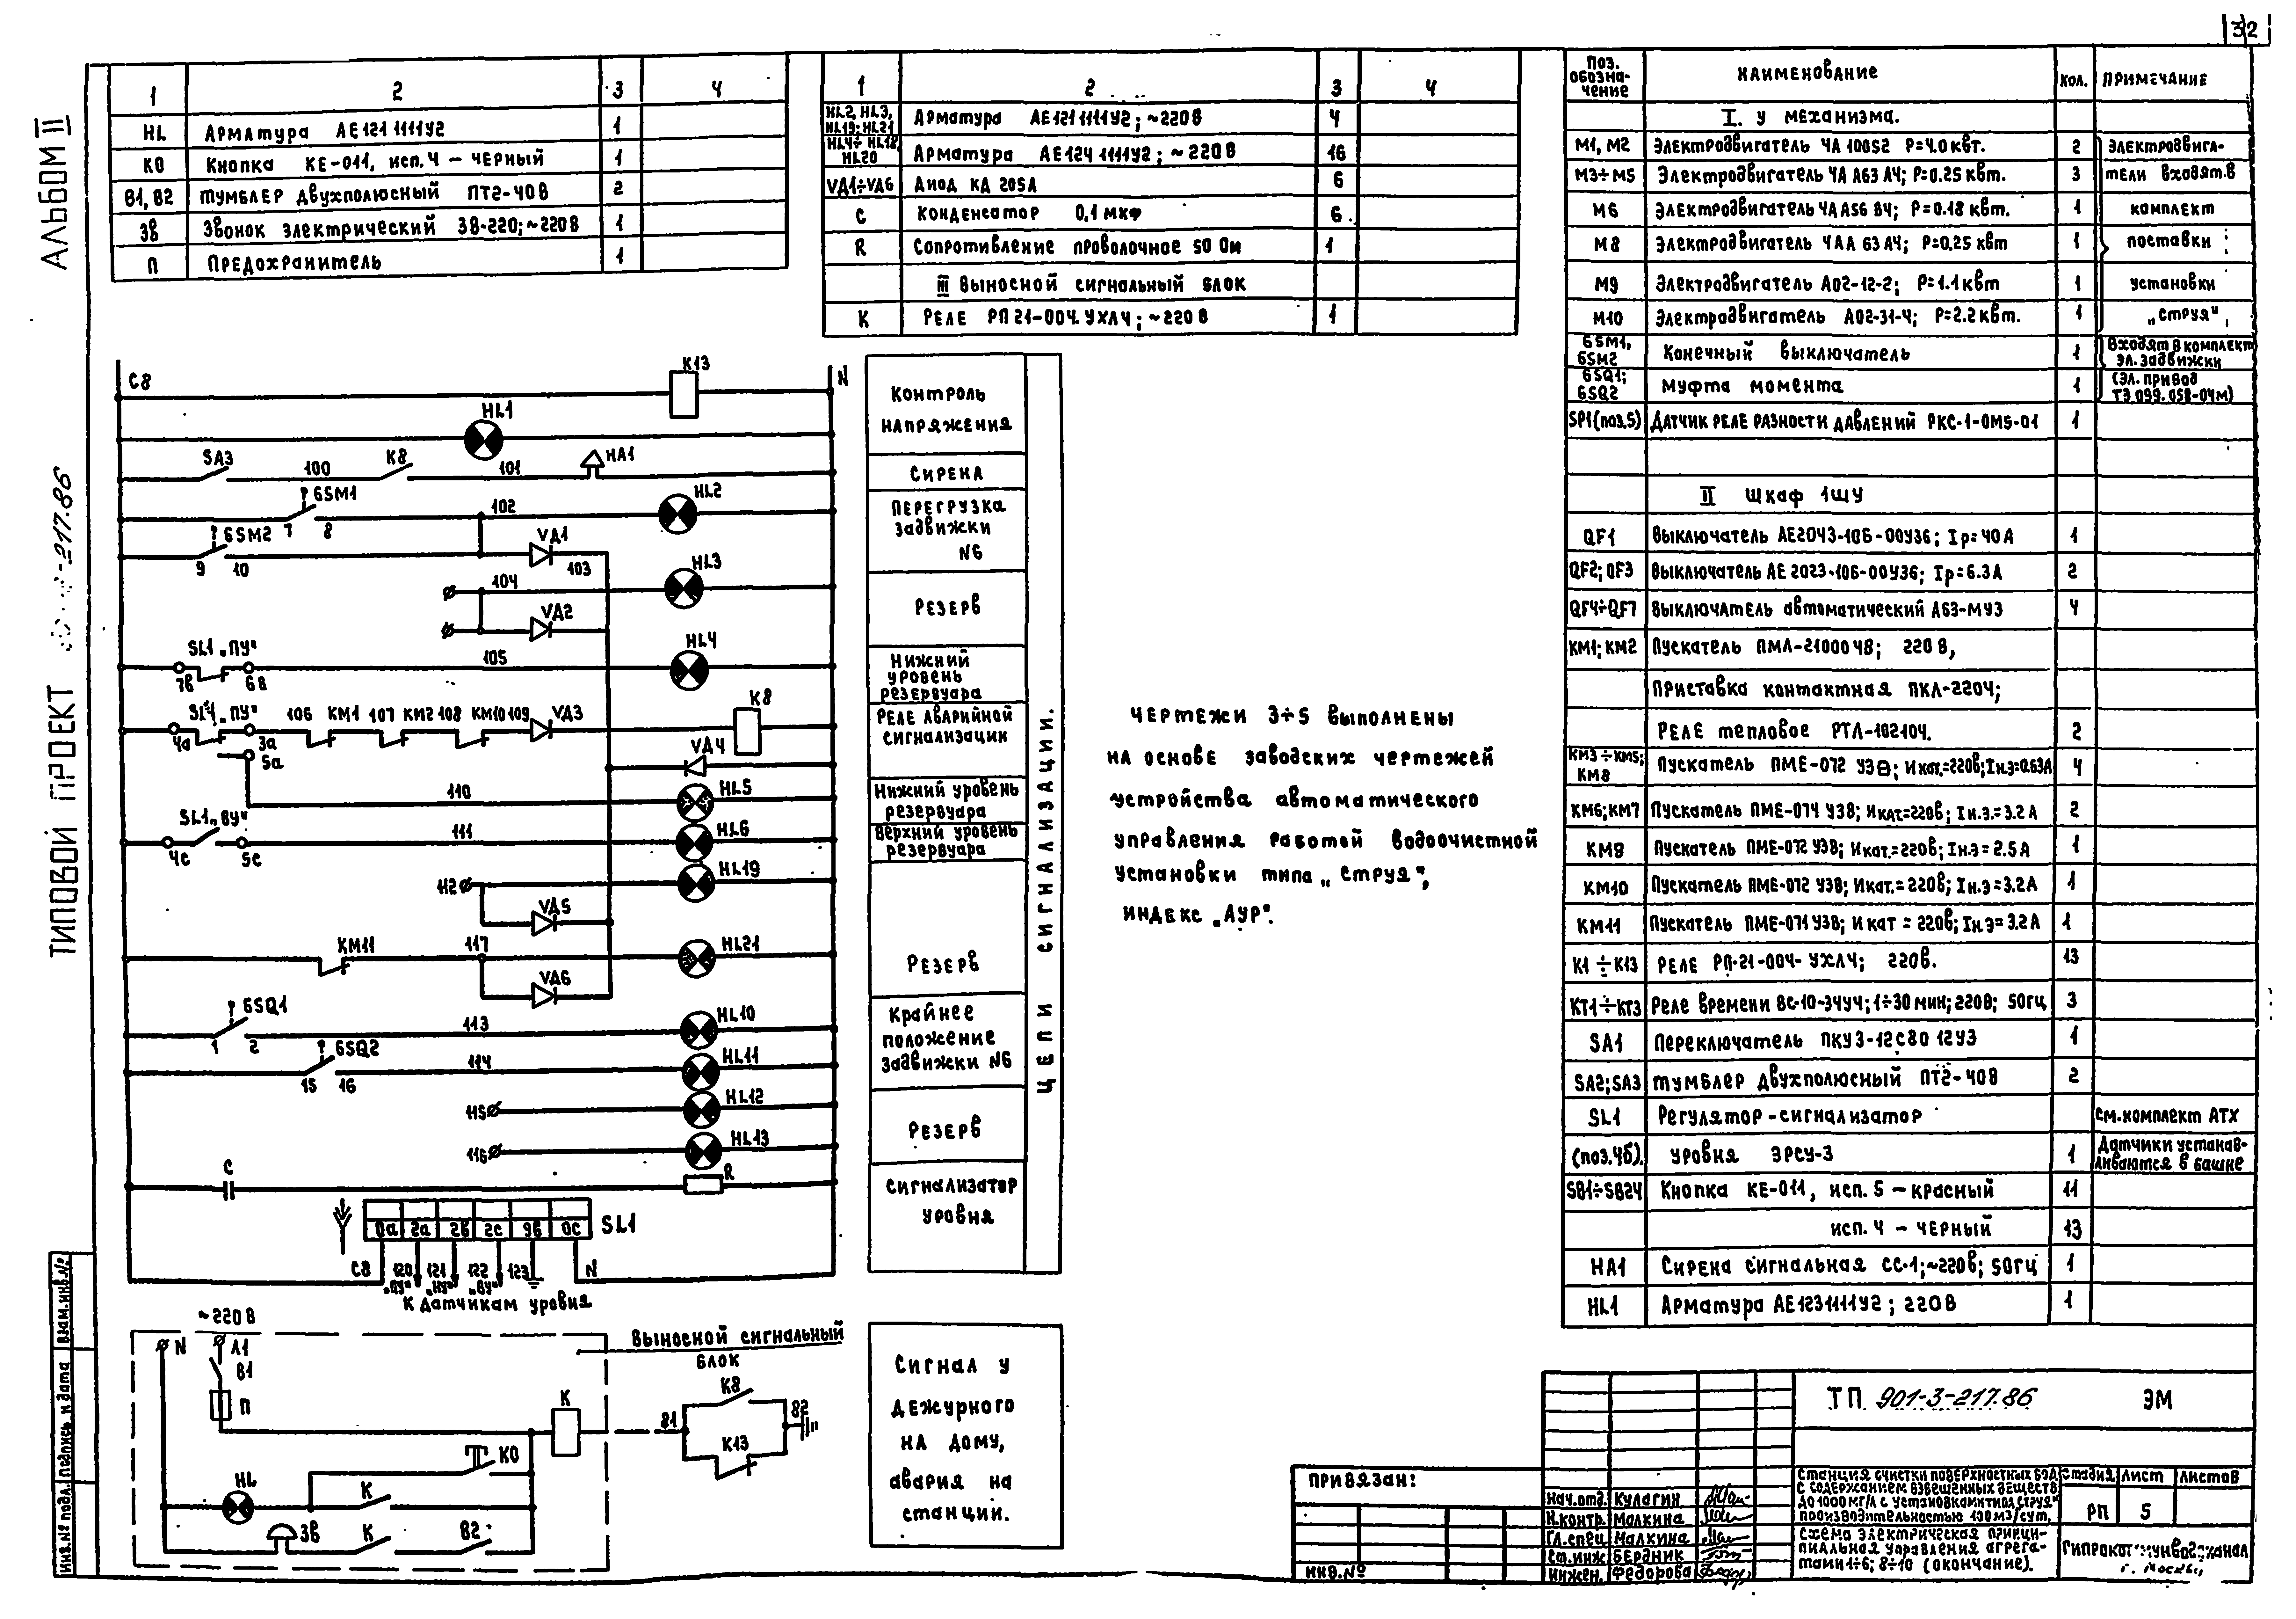 32
АЛЬБОМ II
ТИПОВОЙ ПРОЕКТ
-217.86
1 2 3 4
HL Арматура АЕ121 1111У2 1
КО Кнопка КЕ-011, исп. 4 – черный 1
В1, В2 Тумблер двухполюсный ПТ2-40В 2
Зв Звонок электрический ЗВ-220; ~220В 1
П Предохранитель 1
1 2 3 4
HL2, HL3, HL19; HL21 Арматура АЕ121 1111У2; ~220В 4
HL4÷HL18, HL20 Арматура АЕ124 1111У2; ~220В 16
VД1÷VД6 Диод КД 205А 6
С Конденсатор 0,1 мкф 6
R Сопротивление проволочное 50 Ом 1
III Выносной сигнальный блок
К Реле РП21-004.УХЛ4; ~220В 1
Поз. обозначение Наименование Кол. Примечание
I. У механизма.
М1, М2 Электродвигатель 4А 100S2 Р=4.0 квт. 2 Электродвига-
М3÷М5 Электродвигатель 4А А63 А4; Р=0.25 квт. 3 тели входят в
М6 Электродвигатель 4А А56 В4; Р=0.18 квт. 1 комплект
М8 Электродвигатель 4АА 63 А4; Р=0.25 квт 1 поставки
М9 Электродвигатель АО2-12-2; Р=1.1 квт 1 установки
М10 Электродвигатель АО2-31-4; Р=2.2 квт. 1 „Струя"
6SM1, 6SM2 Конечный выключатель 1 Входят в комплект эл. задвижки
6SQ1; 6SQ2 Муфта момента 1 (эл. привод ТЭ 099.058-04М)
SP1 (поз.5) Датчик реле разности давлений РКС-1-ОМ5-01 1
II Шкаф 1ШУ
QF1 Выключатель АЕ2043-10Б-00У3Б; Iр=40А 1
QF2; QF3 Выключатель АЕ 2023-10Б-00У3Б; Iр=6.3А 2
QF4÷QF7 Выключатель автоматический А63-МУ3 4
КМ1; КМ2 Пускатель ПМЛ-210004В; 220 В,
Приставка контактная ПКЛ-2204;
Реле тепловое РТЛ-102104. 2
КМ3÷КМ5; КМ8 Пускатель ПМЕ-072 У3В; Uкат.=220в; Iн.э=0.63А 4
КМ6; КМ7 Пускатель ПМЕ-074 У3В; Uкат.=220в; Iн.э.=3.2А 2
КМ9 Пускатель ПМЕ-072 У3В; Uкат.=220в; Iн.э=2.5А 1
КМ10 Пускатель ПМЕ-072 У3В; Uкат.=220в; Iн.э=3.2А 1
КМ11 Пускатель ПМЕ-071 У3В; Uкат=220в; Iн.э=3.2А 1
К1÷К13 Реле РП-21-004-УХЛ4; 220в. 13
КТ1÷КТ3 Реле времени ВС-10-34У4; 1÷30 мин; 220В; 50гц 3
SA1 Переключатель ПКУ3-12С80 12У3 1
SA2; SA3 Тумблер двухполюсный ПТ2-40В 2
SL1 Регулятор-сигнализатор См. комплект АТХ
(поз.4б). уровня ЭРСУ-3 1 Датчики устанавливаются в башне
SB1÷SB24 Кнопка КЕ-011, исп. 5 – красный 11
исп. 4 – черный 13
HA1 Сирена сигнальная СС-1; ~220в; 50гц 1
HL1 Арматура АЕ1231111У2; 220В 1
С8 К13 N
HL1
SA3 100 К8 101 HA1
6SM1 7 8 102 HL2
6SM2 9 10 VД1 103
104 HL3
VД2
SL1 „ПУ" 7в 6в 105 HL4
SL1 „ПУ" 4а 3а 5а 106 КМ1 107 КМ2 108 КМ10 109 VД3 К8
VД4
110 HL5
SL1 „ВУ" 4с 5с 111 HL6
112 HL19
VД5
КМ11 117 HL21
VД6
6SQ1 1 2 113 HL10
6SQ2 15 16 114 HL11
115 HL12
116 HL13
С R
0а 2а 2в 2с 9в 0с SL1
С8 120 „ПУ" 121 „НУ" 122 „ВУ" 123 N
К датчикам уровня
Контроль напряжения
Сирена
Перегрузка задвижки N6
Резерв
Нижний уровень резервуара
Реле аварийной сигнализации
Нижний уровень резервуара
Верхний уровень резервуара
Резерв
Крайнее положение задвижки N6
Резерв
Сигнализатор уровня
Цепи сигнализации.
Чертежи 3÷5 выполнены
на основе заводских чертежей
устройства автоматического
управления работой водоочистной
установки типа „Струя",
индекс „АУР".
~220 В
N Л1
В1
П
К
КО
HL К
Зв К В2
Выносной сигнальный блок
81 К8 82
К13
Сигнал у
дежурного
на дому,
авария на
станции.
ТП 901-3-217.86 ЭМ
Привязан:
Инв.№
Нач.отд. Кулагин
Н.контр. Малкина
Гл.спец Малкина
Ст.инж Бердник
Инжен. Федорова
Станция очистки поверхностных вод
с содержанием взвешенных веществ
до 1000 мг/л с установками типа „Струя"
производительностью 100 м3/сут.
Схема электрическая принци-
пиальная управления агрега-
тами 1÷6; 8÷10 (окончание).
Стадия Лист Листов
РП 5
Гипрокоммунводоканал
г. Москва
Инв.№ подл. Подпись и дата Взам.инв.№